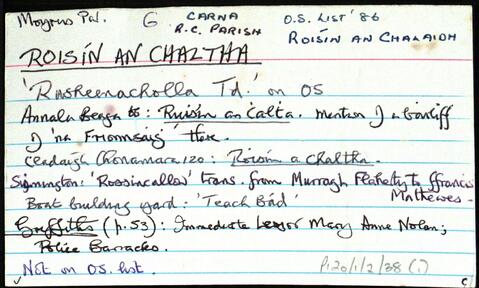 Moyrus Par. G CARNA R.C. PARISH O.S. LIST '86
ROISÍN AN CHALAIDH
ROISÍN AN CHALTHA
'Rusheenacholla Td.' on OS
Annala Beaga : Ruisín an 'calta. mention J a bailiff
J 'na Friomsaig' there.
Ceadaigh Chonamara 120: Roisín a chaltha.
Simington: 'Rossincallow' trans. from Murragh Flaherty to ffrancis Mathewes.
Boat building yard: 'Teach Bád'
Griffiths (p.53): Immediate Lessor Mary Anne Nolan;
Police Barracks.
Not on OS. list.
P120/1/2/38 (1)